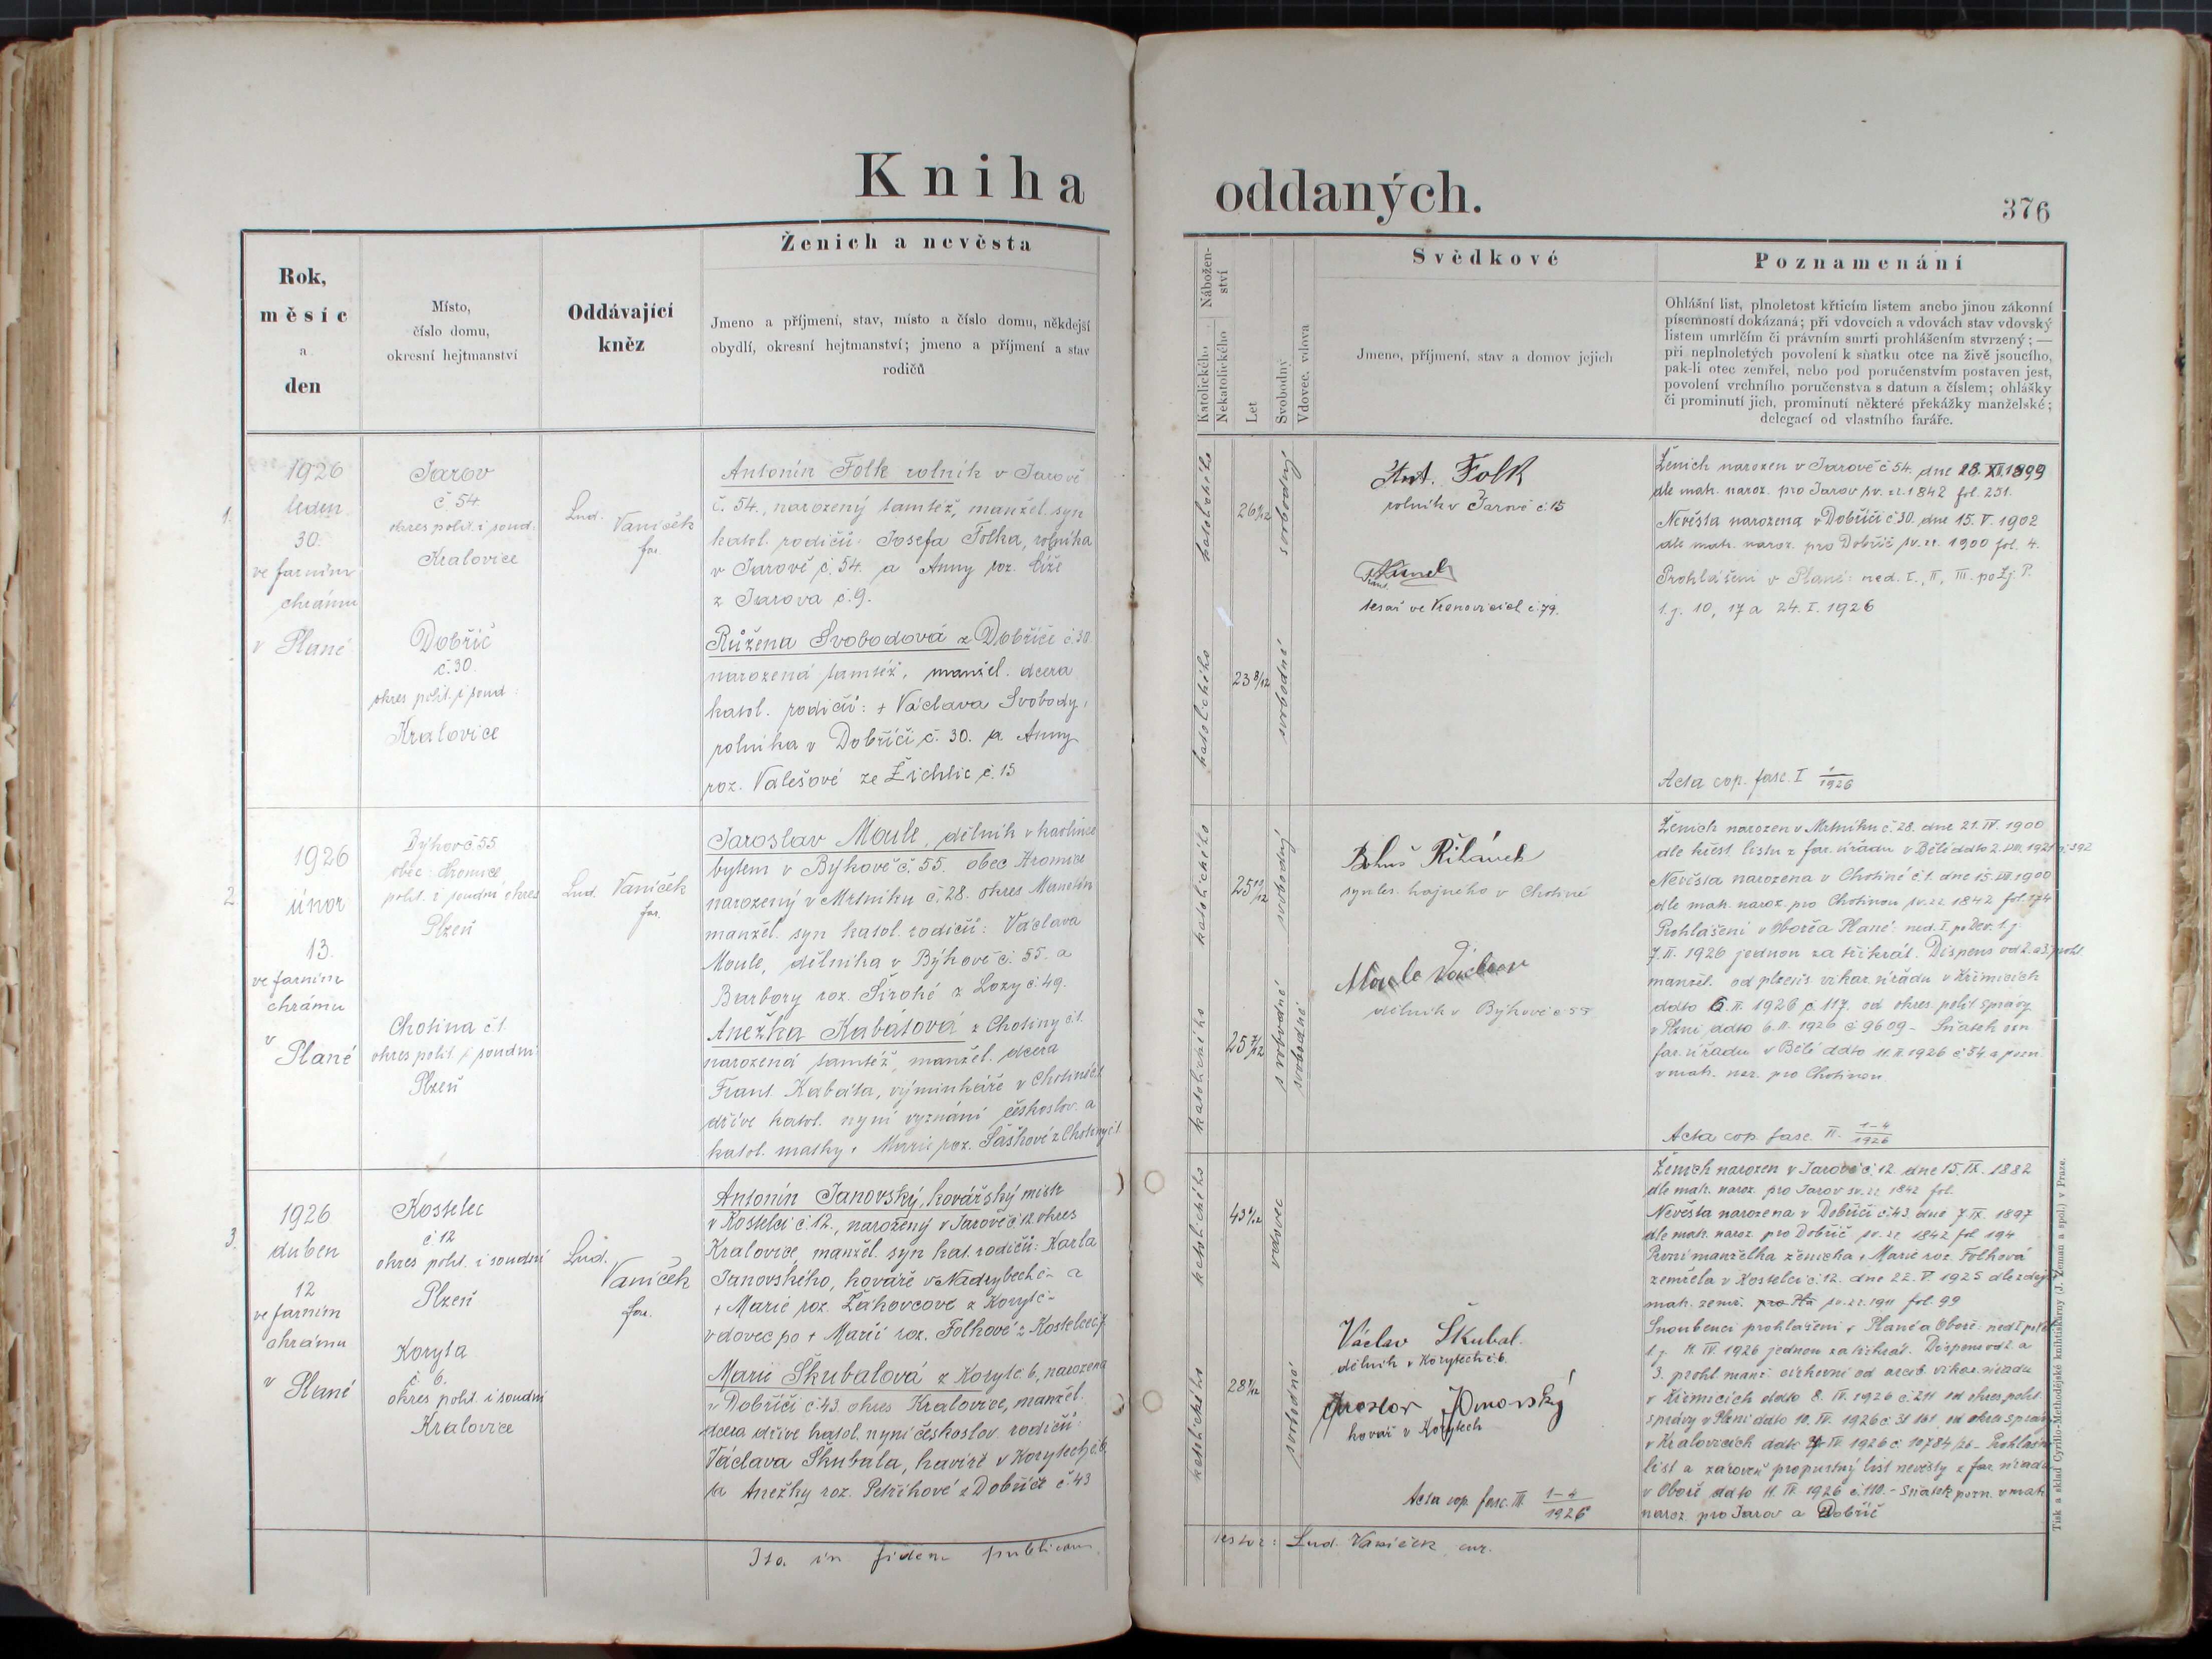 Kniha oddaných.
376
Rok,
měsíc
a
den
Místo,
číslo domu,
okresní hejtmanství
Oddávající
kněz
Ženich a nevěsta
Jmeno a příjmení, stav, místo a číslo domu, někdejší
obydlí, okresní hejtmanství; jmeno a příjmení a stav
rodičů
Nábožen-
ství
Katolického
Nekatolického
Let
Svobodný
Vdovec, vdova
Svědkové
Jmeno, příjmení, stav a domov jejich
Poznamenání
Ohlášní list, plnoletost křticím listem anebo jinou zákonní
písemností dokázaná; při vdovcích a vdovách stav vdovský
listem umrlčím či právním smrti prohlášením stvrzený; —
při neplnoletých povolení k sňatku otce na živě jsoucího,
pak-li otec zemřel, nebo pod poručenstvím postaven jest,
povolení vrchního poručenstva s datum a číslem; ohlášky
či prominutí jich, prominutí některé překážky manželské;
delegací od vlastního faráře.
1.
1926
leden
30.
ve farním
chrámu
v Plané
Jarov
č 54.
okres polit. i soud.
Kralovice
Dobříč
č. 30.
okres polit. i soud:
Kralovice
Lud. Vaníček
far.
Antonín Folk rolník v Jarově
č. 54., narozený tamtéž, manžel. syn
katol. rodičů: Josefa Folka, rolníka
v Jarově č. 54. a Anny roz.
z Jarova č. 9.
Růžena Svobodová z Dobříče č. 30
narozená tamtéž, manžel. dcera
katol. rodičů: + Václava Svobody,
rolníka v Dobříči č. 30. a Anny
roz. Valešové ze Žichlic č. 15
katolického
26 2/12
svobodný
katolického
23 8/12
svobodná
Ant. Folk
rolník v Jarově č. 15
Frant.
tesař ve č. 79.
Ženich narozen v Jarově č 54. dne 28. XI. 1899
dle matr. naroz. pro Jarov sv. z r. 1842 fol. 231.
Nevěsta narozena v Dobříči č 30. dne 15. V. 1902
dle mat. naroz. pro Dobříč sv. z r. 1900 fol. 4.
Prohlášeni v Plané: ned. I., II, III. po Zj. P.
t. j. 10, 17 a 24. I. 1926
Acta cop. fasc. I 1/1926
2.
1926
únor
13.
ve farním
chrámu
v Plané
Býkov č 55
obec Hromice
polit. i soudní okres
Plzeň
Chotina č 1.
okres polit. i soudní
Plzeň
Lud. Vaníček
far.
Jaroslav Moule, dělník v kaolince
bytem v Býkově č. 55. obec Hromice
narozený v Mrtníku č. 28. okres Manětín
manžel. syn katol. rodičů: Václava
Moule, dělníka v Býkově č. 55. a
Barbory roz. Široké z Lozy č. 49.
Anežka Kabátová z Chotiny č 1.
narozená tamtéž, manžel. dcera
Frant. Kabáta, výminkáře v Chotině č. 1
dříve katol. nyní vyznání českoslov. a
katol. matky + Marie roz. Šaškové z Chotiny č 1
katolického
25 10/12
svobodný
katolického
25 7/12
svobodná
svobodná
Bohuš Řihánek
syn les. hajného v Chotiné
Moule Václav
dělník v Býkově č 55
Ženich narozen v Mrtníku č. 28. dne 21. IV. 1900
dle křest. listu z far. úřadu v Bělé ddto 2. VIII. 1921 č. 392
Nevěsta narozena v Chotiné č 1. dne 15. VII. 1900
dle mat. naroz. pro Chotinou sv. z r. 1842 fol. 174
Prohlášeni v Oboře a Plané: ned. I. po Dev. t. j.
7. II. 1926 jednou za třikrát. Dispens od 2. a 3. prohl
manžel. od plzeňs. vikar. úřadu v Křimicích
ddto 6. II. 1926 č. 117. od okres. polit správy
v Plzni ddto 6. II. 1926 č 9609 - Sňatek ozn
far. úřadu v Bělé ddto 11. II. 1926 č 54 a pozn
v mat. nar. pro Chotinou
Acta cop. fasc. II. 1-4/1926
3.
1926
duben
12
ve farním
chrámu
v Plané
Kostelec
č. 12
okres polit. i soudní
Plzeň
Koryta
č. 6.
okres polit. i soudní
Kralovice
Lud. Vaníček
far.
Antonín Janovský, kovářský mistr
v Kostelci č. 12., narozený v Jarově č 12 okres
Kralovice manžel. syn kat. rodičů: Karla
Janovského, kováře v Nadrybech č - a
+ Marie roz. Žákovcové z Koryt č -
vdovec po + Marii roz. Folkové z Kostelce č.
Marie Škubalová z Koryt č. 6, narozená
v Dobříči č. 43. okres Kralovice, manžel.
dcera dříve katol. nyní českoslov. rodičů:
Václava Škubala, havíře v Korytech č. 6
a Anežky roz. Petříkové z Dobříče č. 43
katolického
43 6/12
vdovec
katolického
28 7/12
svobodná
Václav Škubal.
dělník v Korytech č. 6.
Jaroslav Janovský
kovář v Korytech
Acta cop. fasc. III. 1-4/1926
Ženich narozen v Jarově č. 12. dne 15. IX. 1882
dle mat. naroz. pro Jarov sv. z r. 1842 fol.
Nevěsta narozena v Dobříči č. 43. dne 7. IX. 1897
dle mat. naroz. pro Dobříč sv. z r. 1842 fol 194.
První manželka ženicha + Marie roz. Folková
zemřela v Kostelci č. 12. dne 22. V. 1925 dle zdejší
mat. zemř. sv. z r. 1911 fol. 99
Snoubenci prohlášeni v Plané a Oboře ned I po
t. j. 11. IV. 1926 jednou za třikrát. Dispens od 2. a
3. prohl manž. církevní od arcib. vikar. úřadu
v Křimicích ddto 8. IV. 1926 č. 211 od okres polit.
správy v Plzni ddto 10. IV. 1926 č. 31 161. od okres správy
v Kralovicích dato IV. 1926 č. 10784/26 - Prohlášní
list a zároveň propustný list nevěsty z far. úřadu
v Oboře ddto 11. IV. 1926 č. 110. - Sňatek pozn. v mat.
naroz. pro Jarov a Dobříč
Ita in fidem publicam
testor: Lud. Vaníček cur.
Tisk a sklad Cyrillo-Methodějské knihtiskárny (J. Zeman a spol.) v Praze.